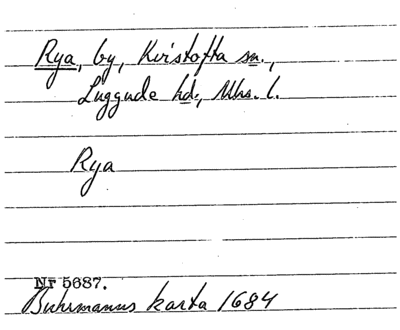 Rya, by, Kvistofta sn.,
Luggude hd., Mhs. l.
Rya
Nr 5687.
Buhrmanns karta 1684